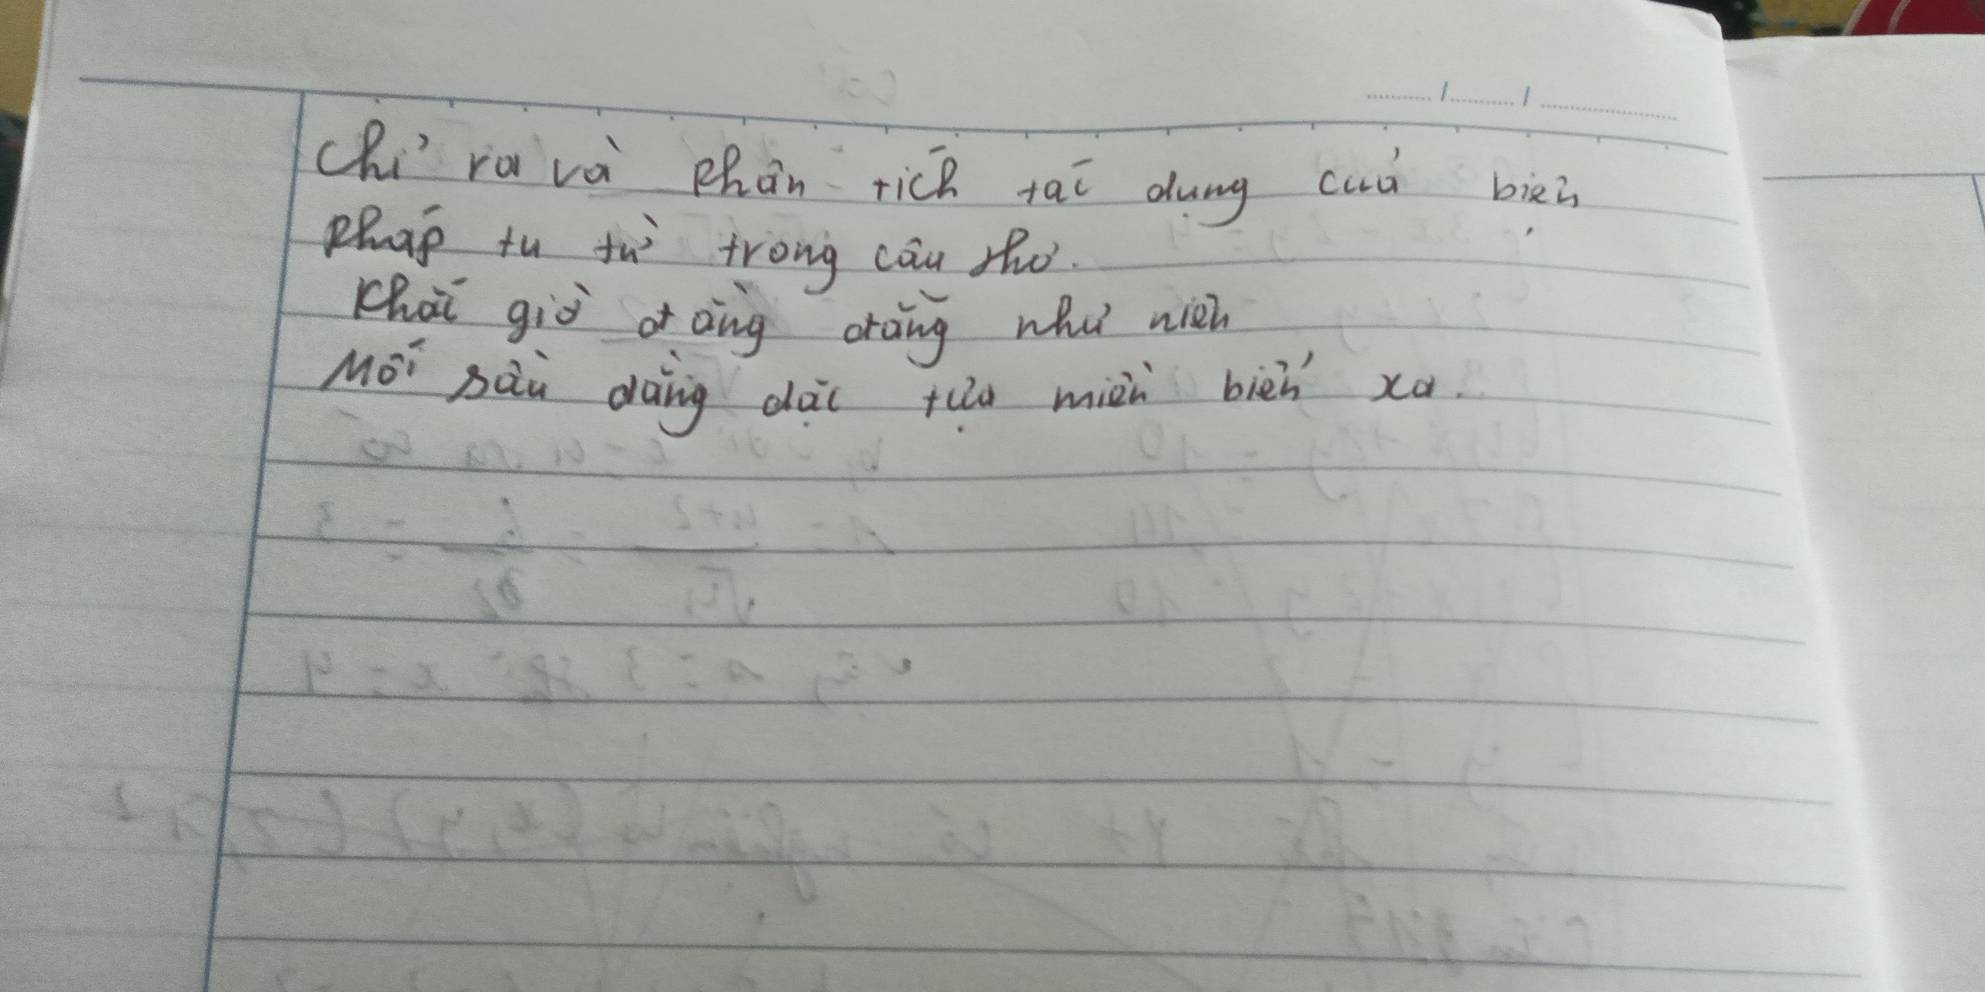 Chỉ ra và phân tích tác dụng của biện
pháp tu từ trong câu thơ.
Khắc giờ đằng đẵng như niên
Mối sầu dằng dặc tựa miền biển xa.